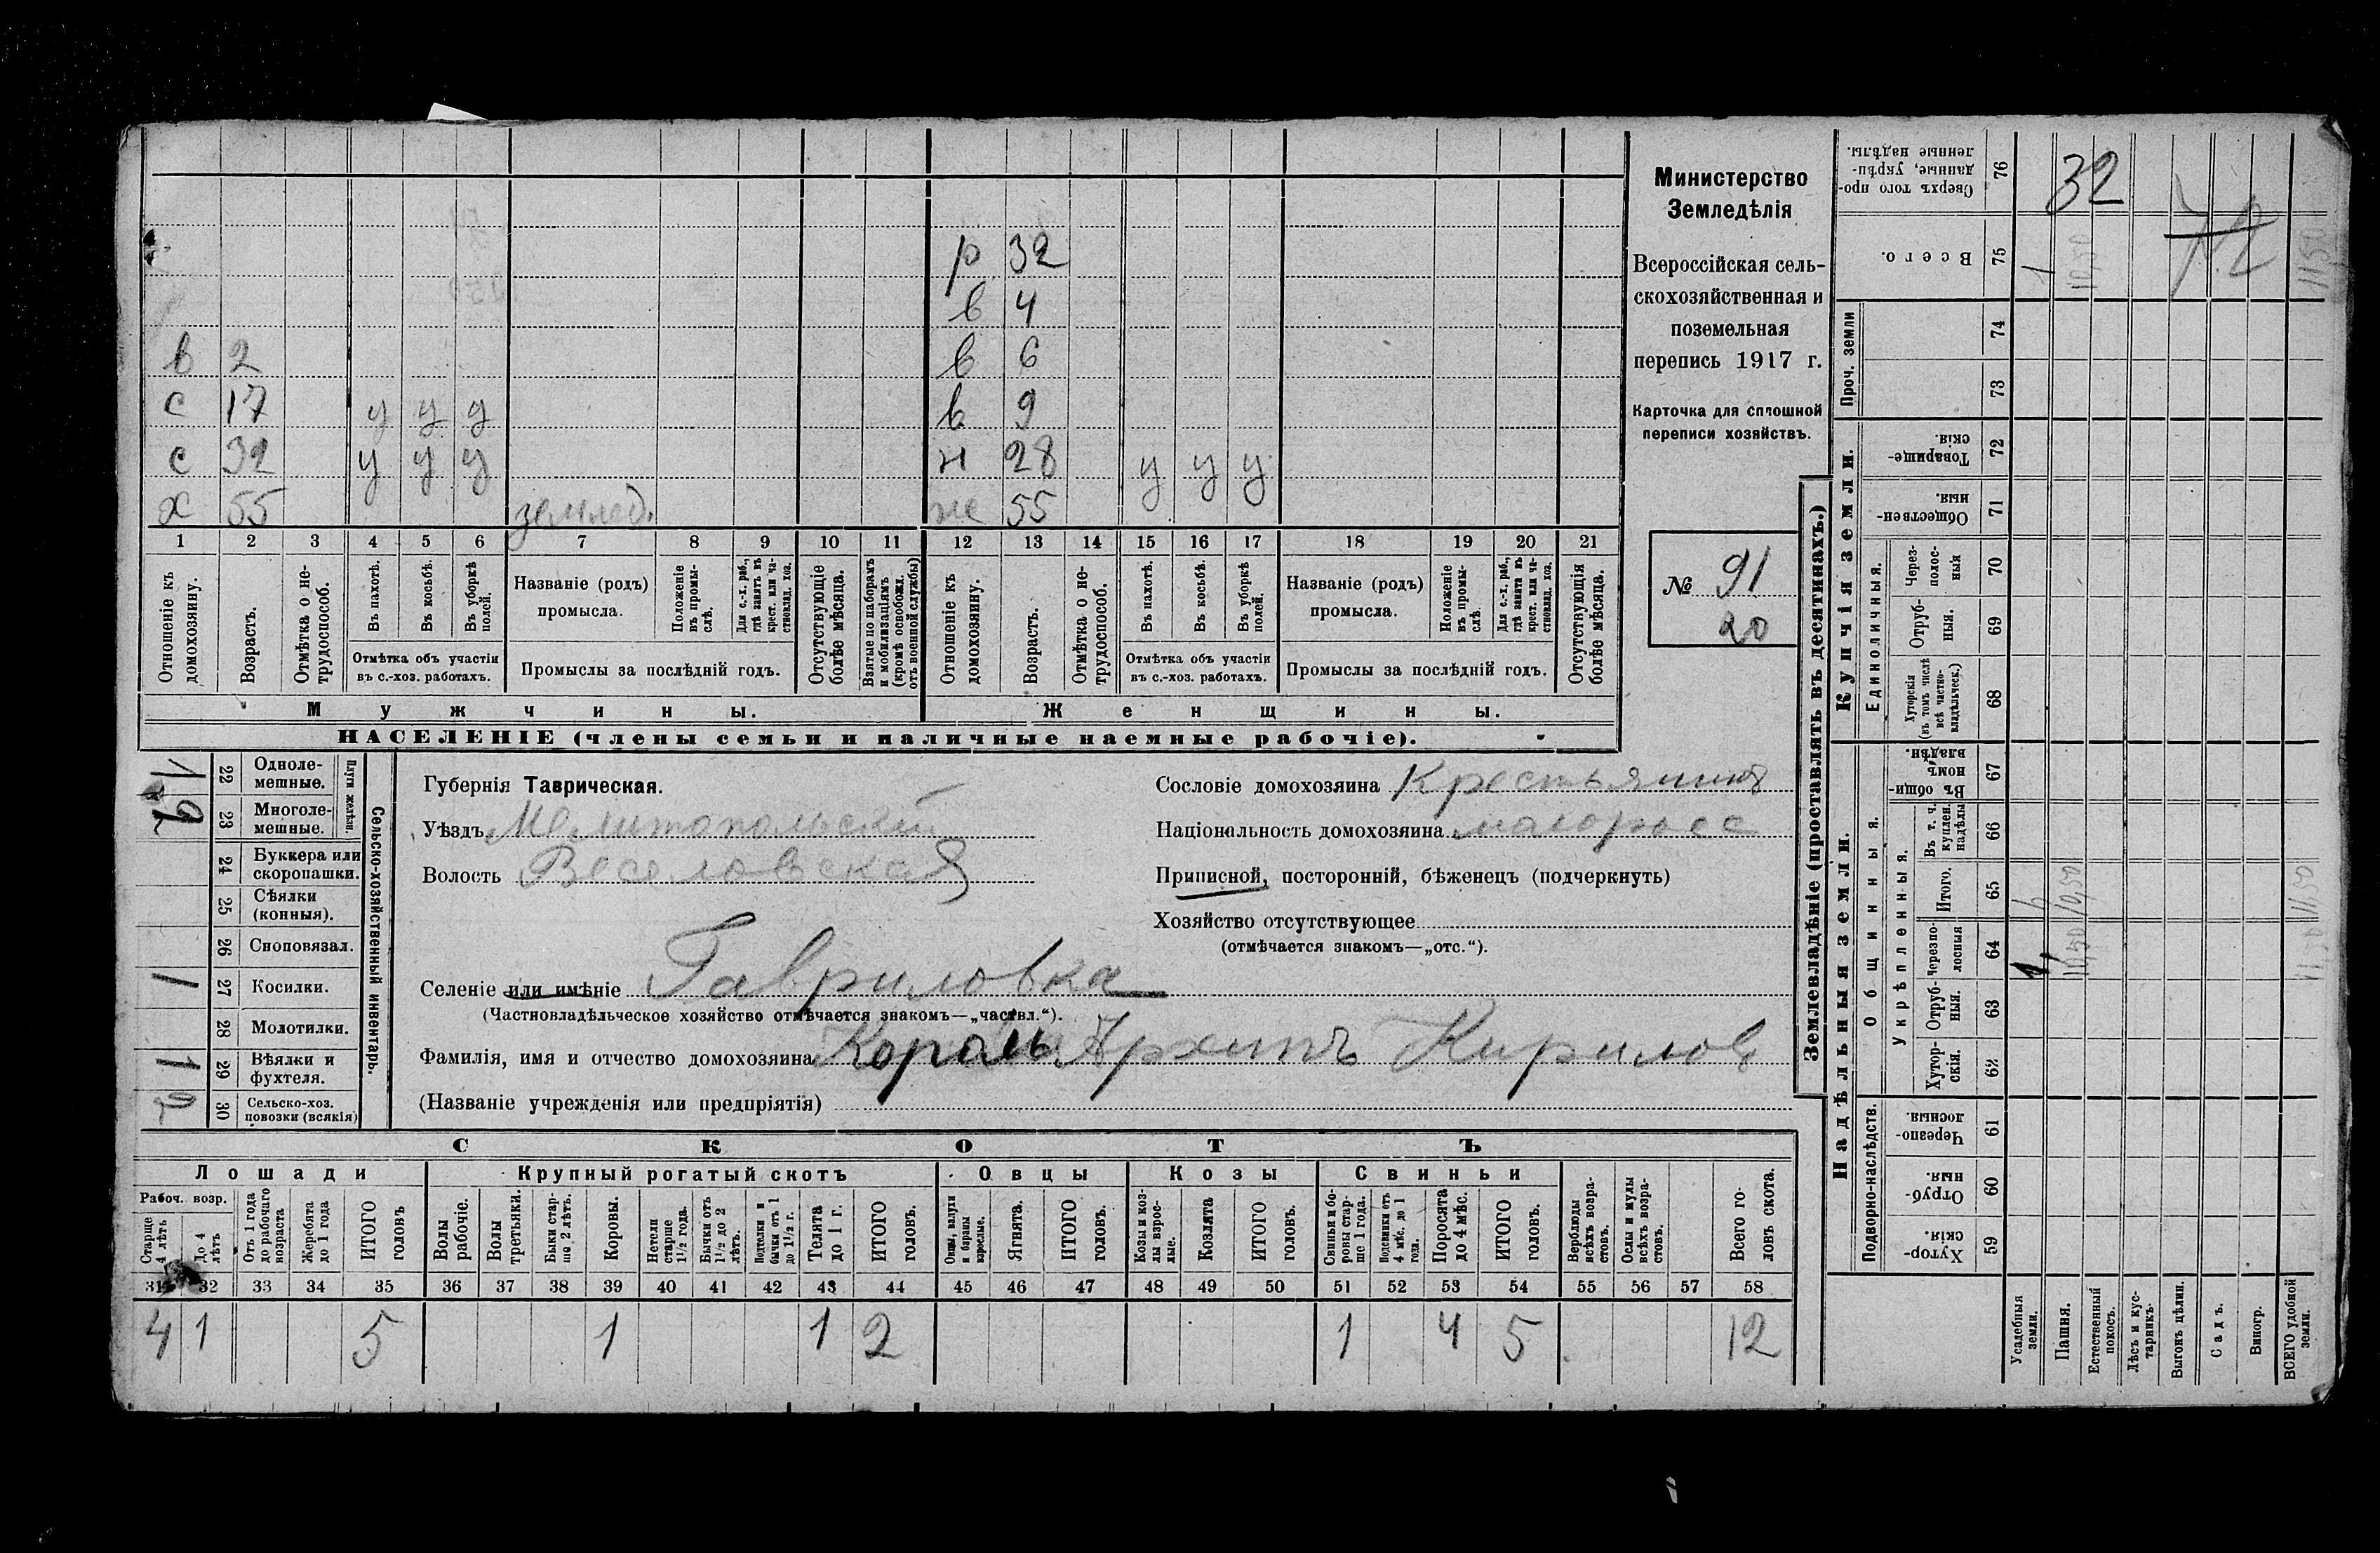 р 32
в 4
в 2 в 6
с 17 у у у в 9
с 32 у у у н 28 у у у
х 55 землед. же 55
1 2 3 4 5 6 7 8 9 10 11 12 13 14 15 16 17 18 19 20 21
Отношеніе къ домохозяину.
Возрастъ.
Отмѣтка о не-трудоспособ.
Въ пахотѣ.
Въ косьбѣ.
Въ уборкѣ полей.
Отмѣтка объ участіи
въ с.-хоз. работахъ.
Названіе (родъ)
промысла.
Положеніе въ промы-слѣ.
Для с.-х. раб., гдѣ занятъ въ крест. или ча-стновлад. хоз.
Промыслы за послѣдній годъ.
Отсутствующіе болѣе мѣсяца.
Взятые по наборамъ и мобилизаціямъ (кромѣ освобожд. отъ военной службы)
Отношеніе къ домохозяину.
Возрастъ.
Отмѣтка о не-трудоспособ.
Въ пахотѣ.
Въ косьбѣ.
Въ уборкѣ полей.
Отмѣтка объ участіи
въ с.-хоз. работахъ.
Названіе (родъ)
промысла.
Положеніе въ промы-слѣ.
Для с.-х. раб., гдѣ занята въ крест. или ча-стновлад. хоз.
Промыслы за послѣдній годъ.
Отсутствующія болѣе мѣсяца.
Мужчины.
Женщины.
НАСЕЛЕНІЕ (члены семьи и наличные наемные рабочіе).
Министерство
Земледѣлія
Всероссійская сель-
скохозяйственная и
поземельная
перепись 1917 г.
Карточка для сплошной
переписи хозяйствъ.
№ 91
20
22 Однолемешные. 1
23 Многолемешные.
Плуги желѣзн.
24 Буккера или скоропашки.
25 Сѣялки (конныя).
26 Сноповязал.
27 Косилки. 1
28 Молотилки.
29 Вѣялки и фухтеля. 1
30 Сельско-хоз. повозки (всякія)
Сельско-хозяйственный инвентарь.
Губернія Таврическая.
Уѣздъ Мелитопольский
Волость Веселовская
Сословіе домохозяина Крестьянинъ
Національность домохозяина малоросс
Приписной, посторонній, бѣженецъ (подчеркнуть)
Хозяйство отсутствующее
(отмѣчается знакомъ—„отс.“).
Селеніе или имѣніе Гавриловка
(Частновладѣльческое хозяйство отмѣчается знакомъ—„частвл.“).
Фамилія, имя и отчество домохозяина Король Архипъ Кирилов
(Названіе учрежденія или предпріятія)
СКОТЪ
Лошади Крупный рогатый скотъ Овцы Козы Свиньи
Рабоч. возр.
Старше 4 лѣтъ
До 4 лѣтъ
Отъ 1 года до рабочаго возраста
Жеребята до 1 года
ИТОГО головъ
Волы рабочіе.
Волы третьяки.
Быки стар-ше 2 лѣтъ.
Коровы.
Нетели старше 1½ года.
Бычки отъ 1½ до 2 лѣтъ.
Подтелки и бычки отъ 1 до 1½ г.
Телята до 1 г.
ИТОГО головъ.
Овцы, валухи и бараны взрослые.
Ягнята.
ИТОГО головъ.
Козы и коз-лы взрос-лые.
Козлята
ИТОГО головъ.
Свиньи и бо-ровы стар-ше 1 года.
Подсвинки отъ 4 мѣс. до 1 года.
Поросята до 4 мѣс.
ИТОГО головъ.
Верблюды всѣхъ возра-стовъ.
Ослы и мулы всѣхъ возра-стовъ.
Всего го-ловъ скота.
31 32 33 34 35 36 37 38 39 40 41 42 43 44 45 46 47 48 49 50 51 52 53 54 55 56 57 58
4 1 5 1 1 2 1 4 5 12
Землевладѣніе (проставлять въ десятинахъ.)
Купчія земли.
Надѣльныя земли.
Сверхъ того про-данные, укрѣп-ленные надѣлы. 76 32
Всего. 75 1 10,50 11,50
Проч. земли 74
73
Товарище-скія. 72
Обществен-ныя. 71
Единоличныя.
Через-полос-ныя 70
Отруб-ныя. 69
Хуторскія (въ томъ числѣ всѣ частно-владѣльческ.) 68
Общинныя.
Въ общи-номъ владѣн. 67
Укрѣпленныя.
Въ т. ч. куплен. надѣлы 66
Итого. 65 10,50 11,50
Черезпо-лосныя 64 1 10,50 11,50
Отруб-ныя. 63
Хутор-скія. 62
Подворно-наслѣдств.
Черезпо-лосныя. 61
Отруб-ныя. 60
Хутор-скія. 59
Усадебныя земли.
Пашня.
Естественный покосъ.
Лѣсъ и кус-тарникъ.
Выгонъ цѣлин.
Садъ.
Виногр.
ВСЕГО удобной земли.